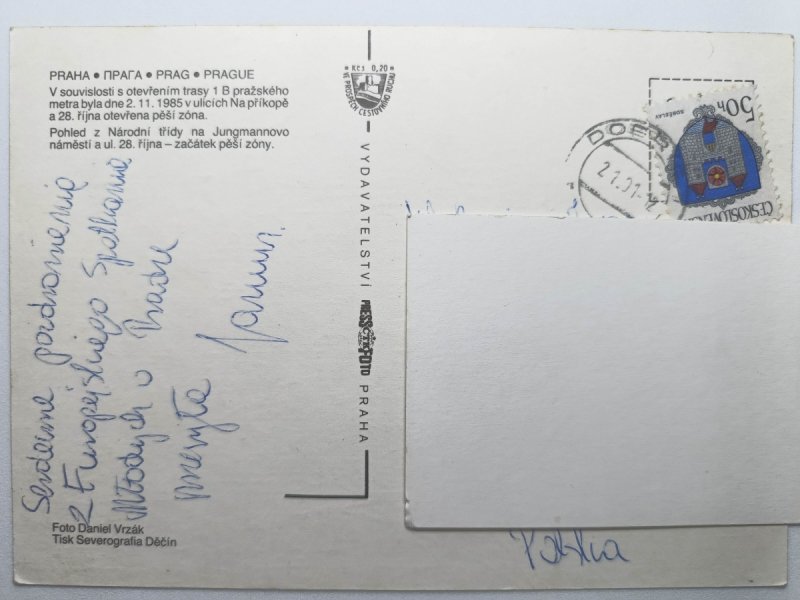 PRAHA • ПРАГА • PRAG • PRAGUE
V souvislosti s otevřením trasy 1 B pražského
metra byla dne 2. 11. 1985 v ulicích Na příkopě
a 28. října otevřena pěší zóna.
Pohled z Národní třídy na Jungmannovo
náměstí a ul. 28. října – začátek pěší zóny.
Serdeczne pozdrowienia
z Europejskiego Spotkania
Młodych w Pradze
przesyła
Foto Daniel Vrzák
Tisk Severografia Děčín
Kčs 0,20
VE PROSPĚCH CESTOVNÍHO RUCHU
VYDAVATELSTVÍ PRESSFOTO PRAHA
50h
ČESKOSLOVENS
Polska